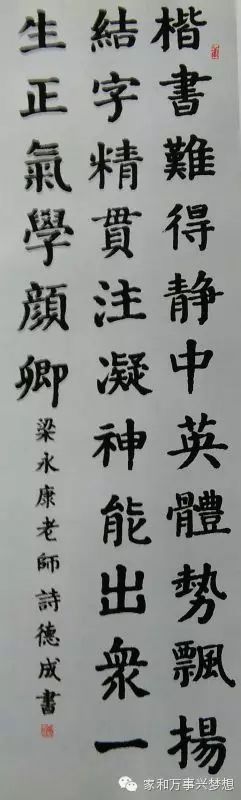 楷書難得静中英體勢飄揚
結字精貫注凝神能出衆一
生正氣學顔卿
梁永康老師詩德成書
家和万事兴梦想